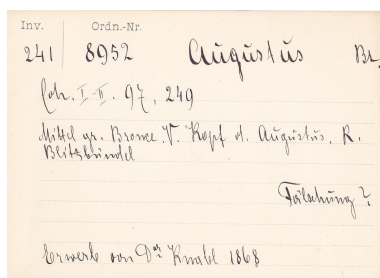 Inv. Ordn.-Nr.
241 8952 Augustus Br.
Coh. I-II. 97, 249
Mittel gr. Bronce. V. Kopf d. Augustus. R.
Blitzbündel
Fälschung?
Erwerb von Dr Knabl 1868